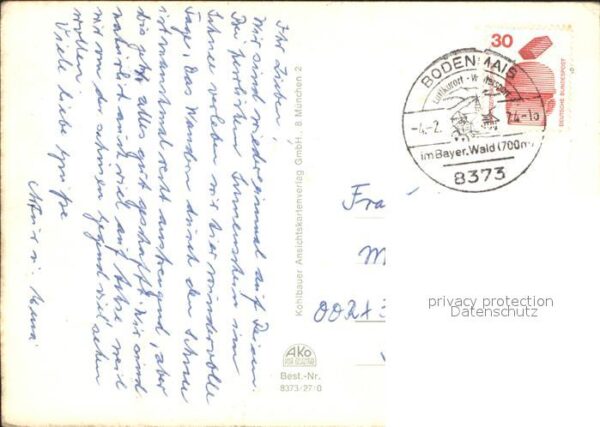 Ihr Lieben!
Wir sind wieder einmal auf Reisen.
Bei herrlichem Sonnenschein im
Schnee verleben wir hier wundervolle
Tage. Das Wandern durch den Schnee
ist manchmal recht anstrengend, aber
bis jetzt alles gut geschafft. Wir sind
natürlich auch viel auf Achse, weil
wir von der schönen Gegend viel sehen
wollen.
Viele liebe Grüße
Kohlbauer Ansichtskartenverlag GmbH., 8 München 2
AKO
Best.-Nr.
8373/27/0
30
DEUTSCHE BUNDESPOST
BODENMAIS
Luftkurort - Wintersport
-4.-2. 74-16
im Bayer. Wald (700m)
8373
Fra
M
privacy protection
Datenschutz